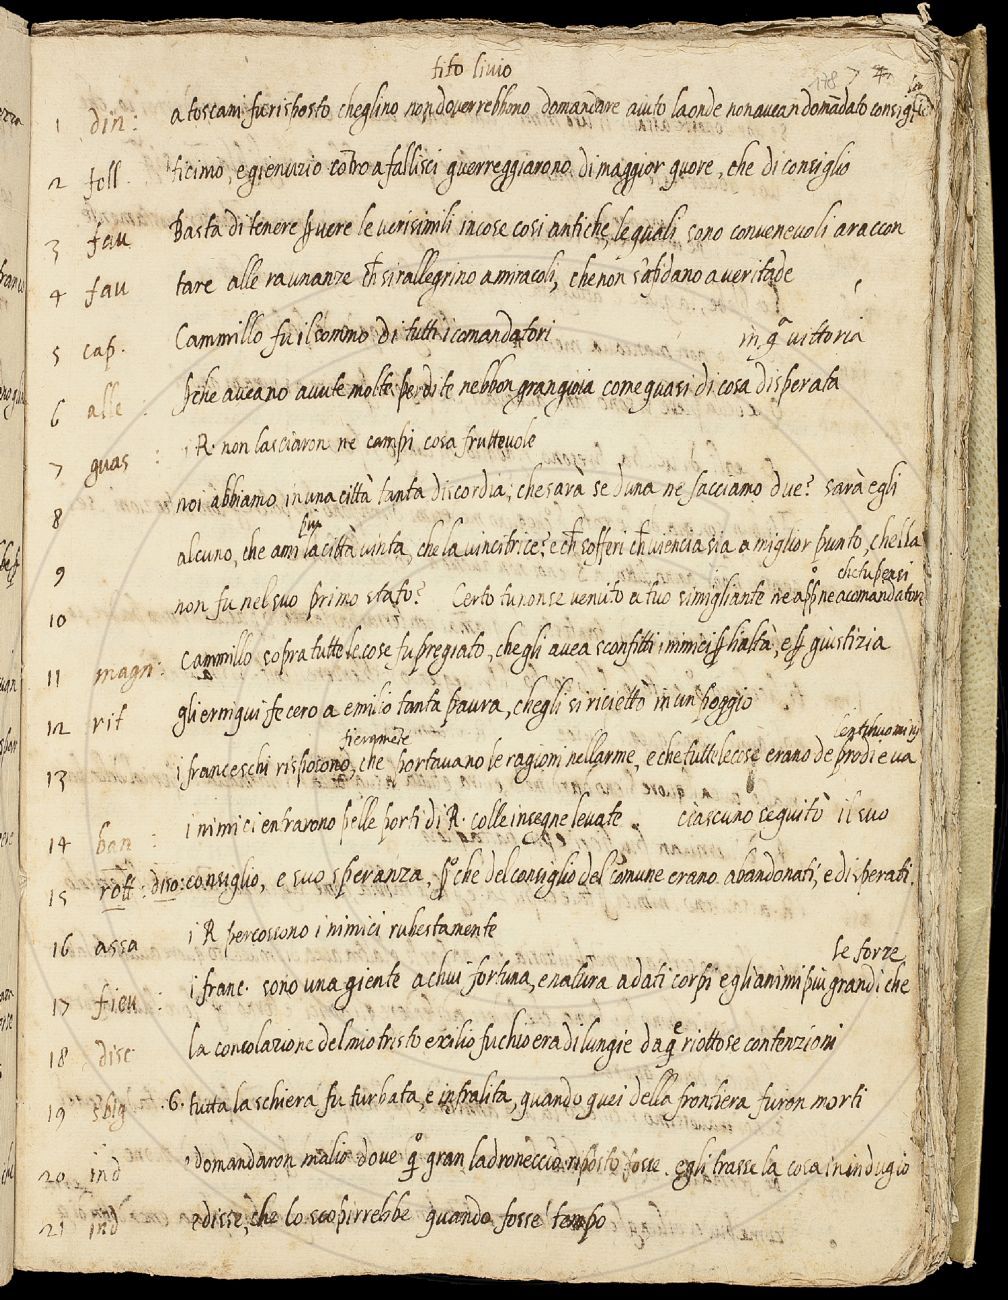 tito liuio
178 7
1 din: a toscani fu risposto cheglino non doverrebbono domandare aiuto laonde non aueandomãdato consiglio
2 foll. ticimo, e gienuzio cõtro a fallisci guerreggiarono di maggior quore, che di consiglio
3 fau Basta di tenere ꝑ vere le verisimili in cose cosi antiche, le quali sono convenevoli a raccon
4 fau tare alle raunanze ch̃ si rallegrino a miracoli, che non s'afidano a veritade
5 cap. Cammillo fu il sommo di tutti i comandatori in q̃a vittoria
6 alle : ꝑche aveano avute molte perdite nebbon gran gioia come quasi di cosa disperata
7 guas : i R. non lasciaron ne campi cosa fruttevole
8 noi abbiamo in una città tanta discordia; che sarà se d'una ne facciamo due? sarà egli
più
9 alcuno, che ami la città vinta, che la vincitrice? e ch̃ sofferi ch̃ viencia sia a miglior punto, chella
che tu pensi
10 non fu nel suo primo stato? Certo tu non se venuto a tuo simigliante ne a pºpº ne a comandatore
11 magn: Cammillo sopra tutte le cose fu pregiato, chegli avea sconfitti i nimici ꝑ haltà, e ꝑ giustizia
12 rit gli ernigui fecero a emilio tanta paura, chegli si ricietto in un poggio
fieramẽte le[n]tihuomini
13 i franceschi risposono, che portavano le ragioni nellarme, e che tutte le cose erano de prodi e va
14 ban : i nimici entrarono pelle porti di R. colle insegne levate . ciascuno seguitò il suo
15 rott : diso: consiglio, e suo speranza, ꝑº che del consiglio del comune erano abandonati, e disperati.
16 assa i R percossono i nimici rubestamente
le forze
17 fieu : i franc. sono una giente a chui fortuna, e natura a dati corpi e gli animi più grandi che
18 disc la consolazione del mio tristo exilio fu chio era di lungie da q̃e riottose contenzioni
19 sbig .6. tutta la schiera fu turbata, e infralita, quando quei della frontiera furon morti
20 ind e domandaron malio dove qº gran ladroneccio riposto fosse . egli trasse la cosa in indugio
21 ind e disse, che lo scopirrebbe quando fosse tempo